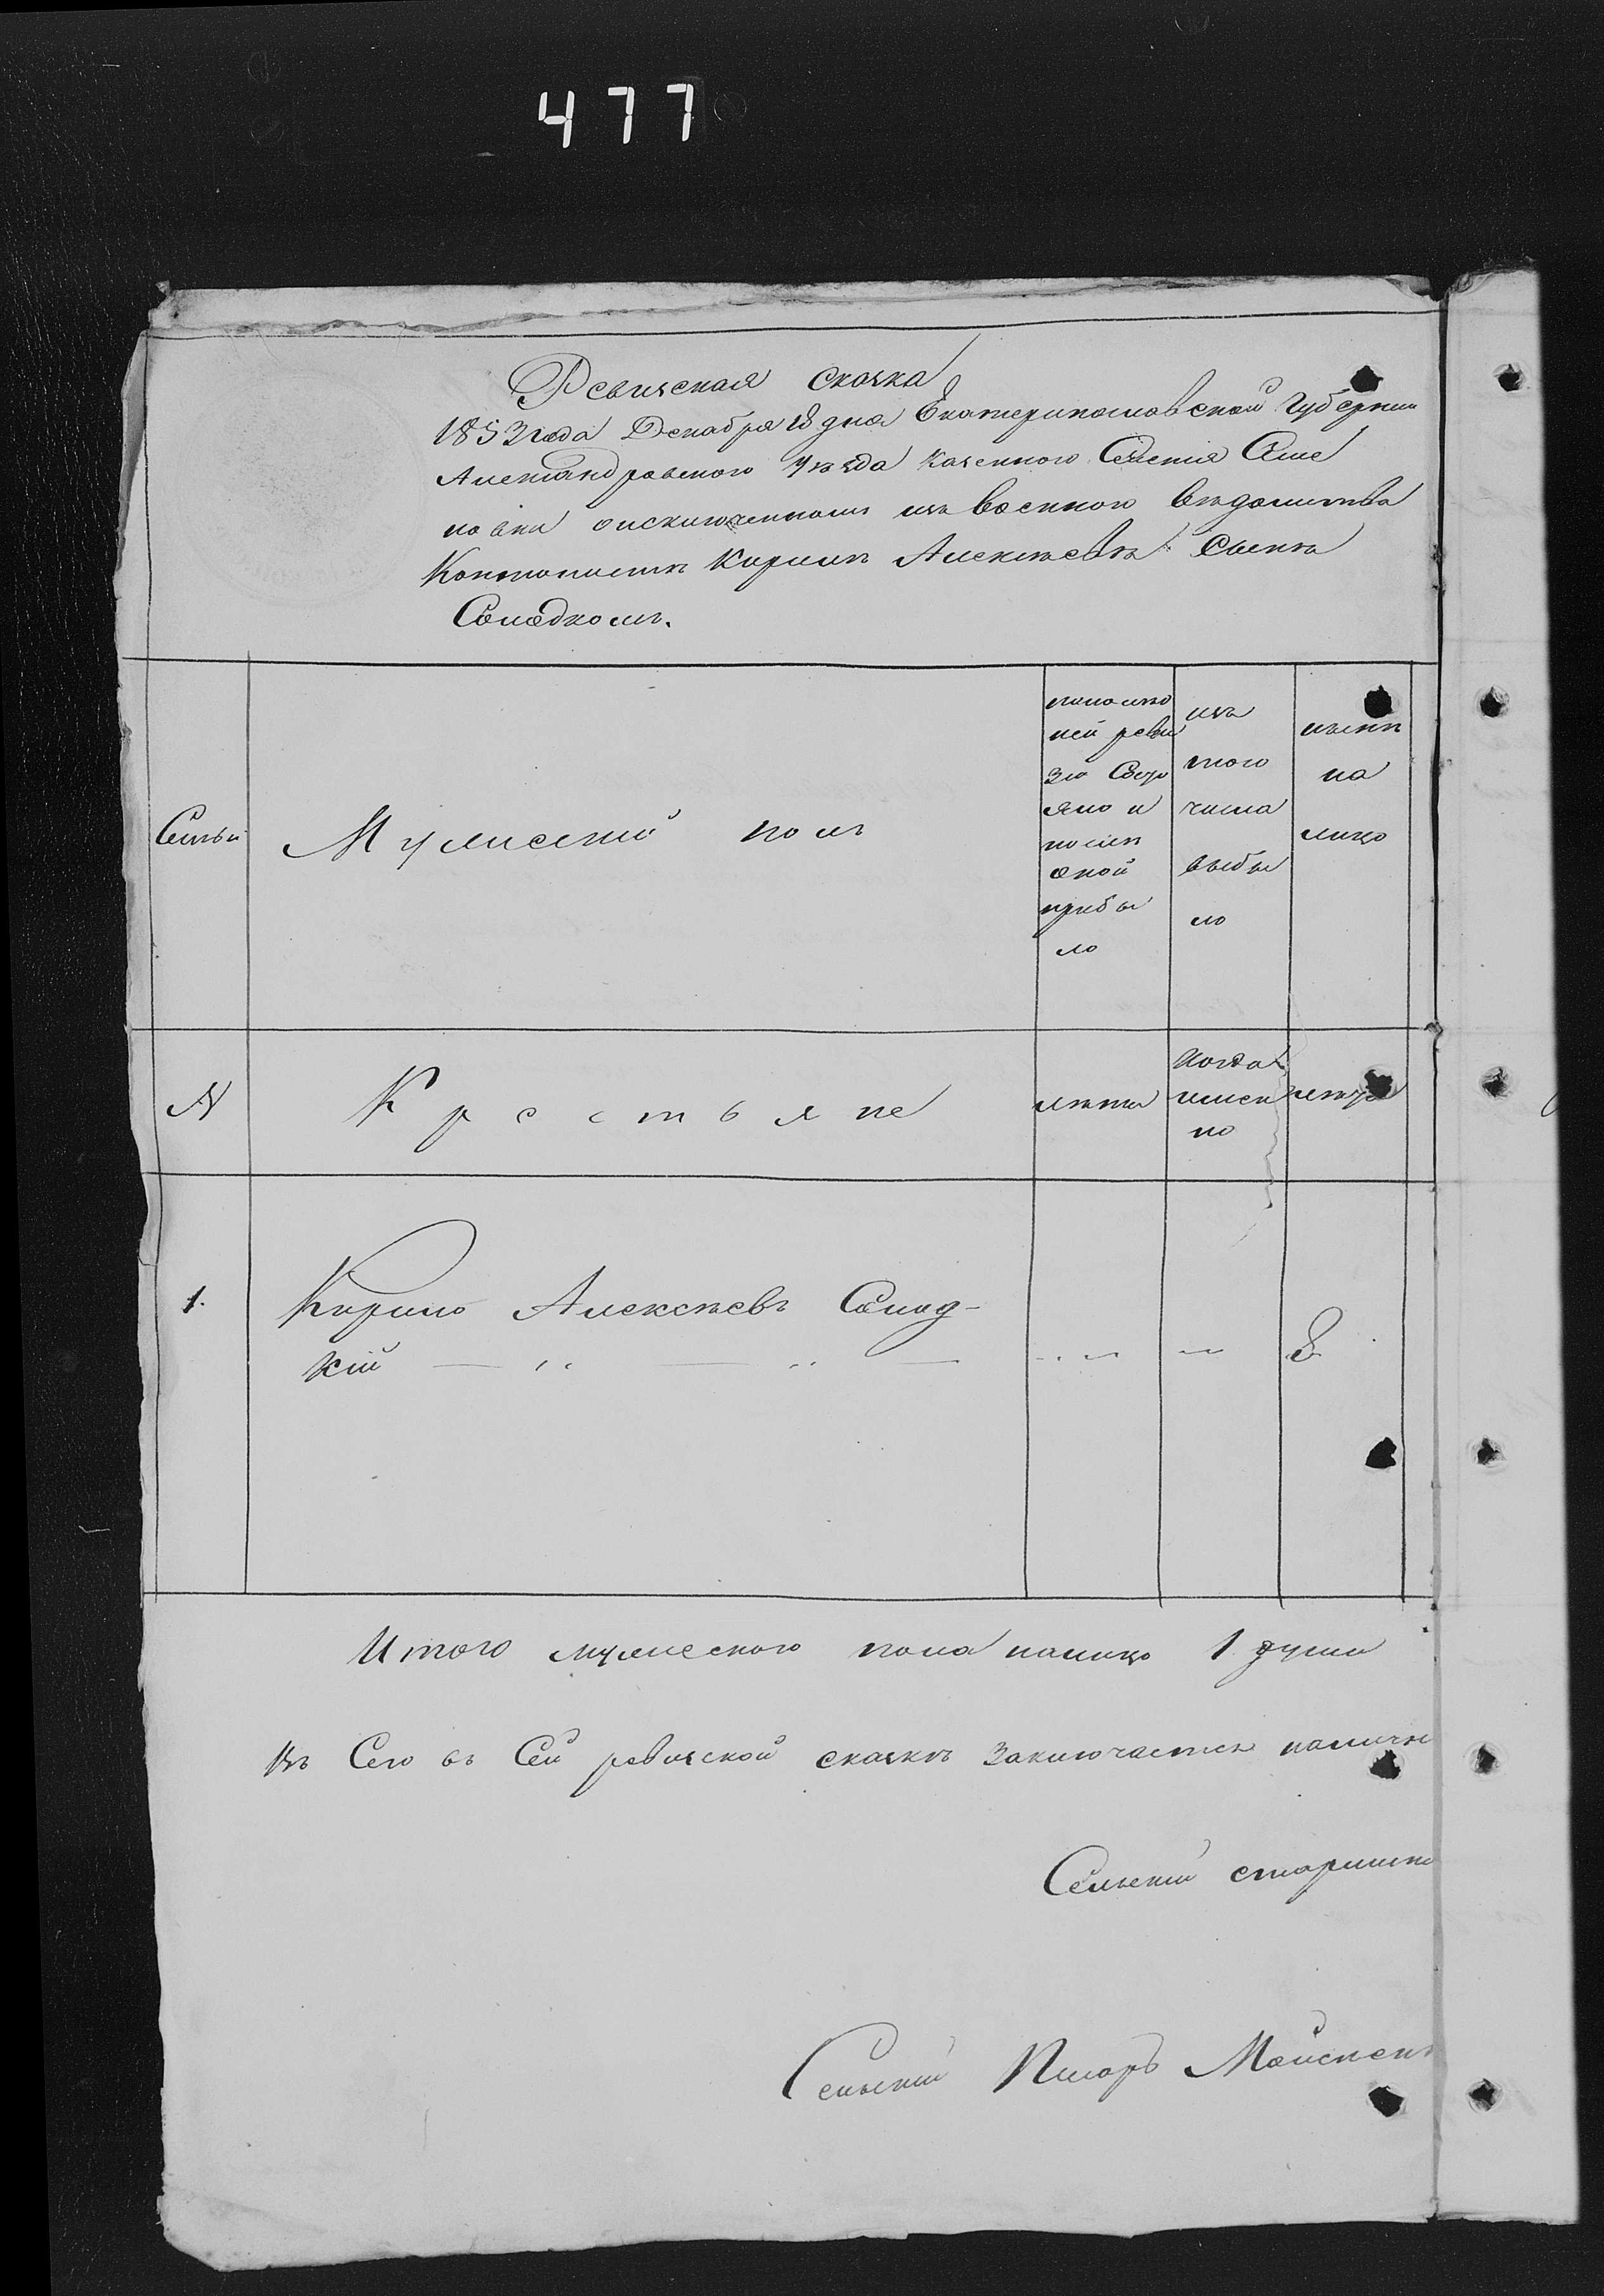 477
Ревизская сказка
1853 года Декабря 18 дня Екатеринославской Губерніи
Александровского Уѣзда казенного Селенія Семе
новки о исключенномъ изъ военного вѣдомства
Кантонистѣ Кирилѣ Алексѣевѣ Сынѣ
Солодкомъ.
Семьи
Мужескій полъ
по послѣд
ней реви
зіи Состо
яло и
послѣ
оной
прибы
ло
изъ
того
числа
выбы
ло
нынѣ
на
лицо
№
Крестьяне
лѣта
Когда
имен
но
лѣта
1.
Кирило Алексѣевъ Солод-
кій
8
Итого мужеского пола налицо 1 душа
Въ Сей ревизской сказкѣ заключается налично
Сельскій старшина
Сельскій Писарь